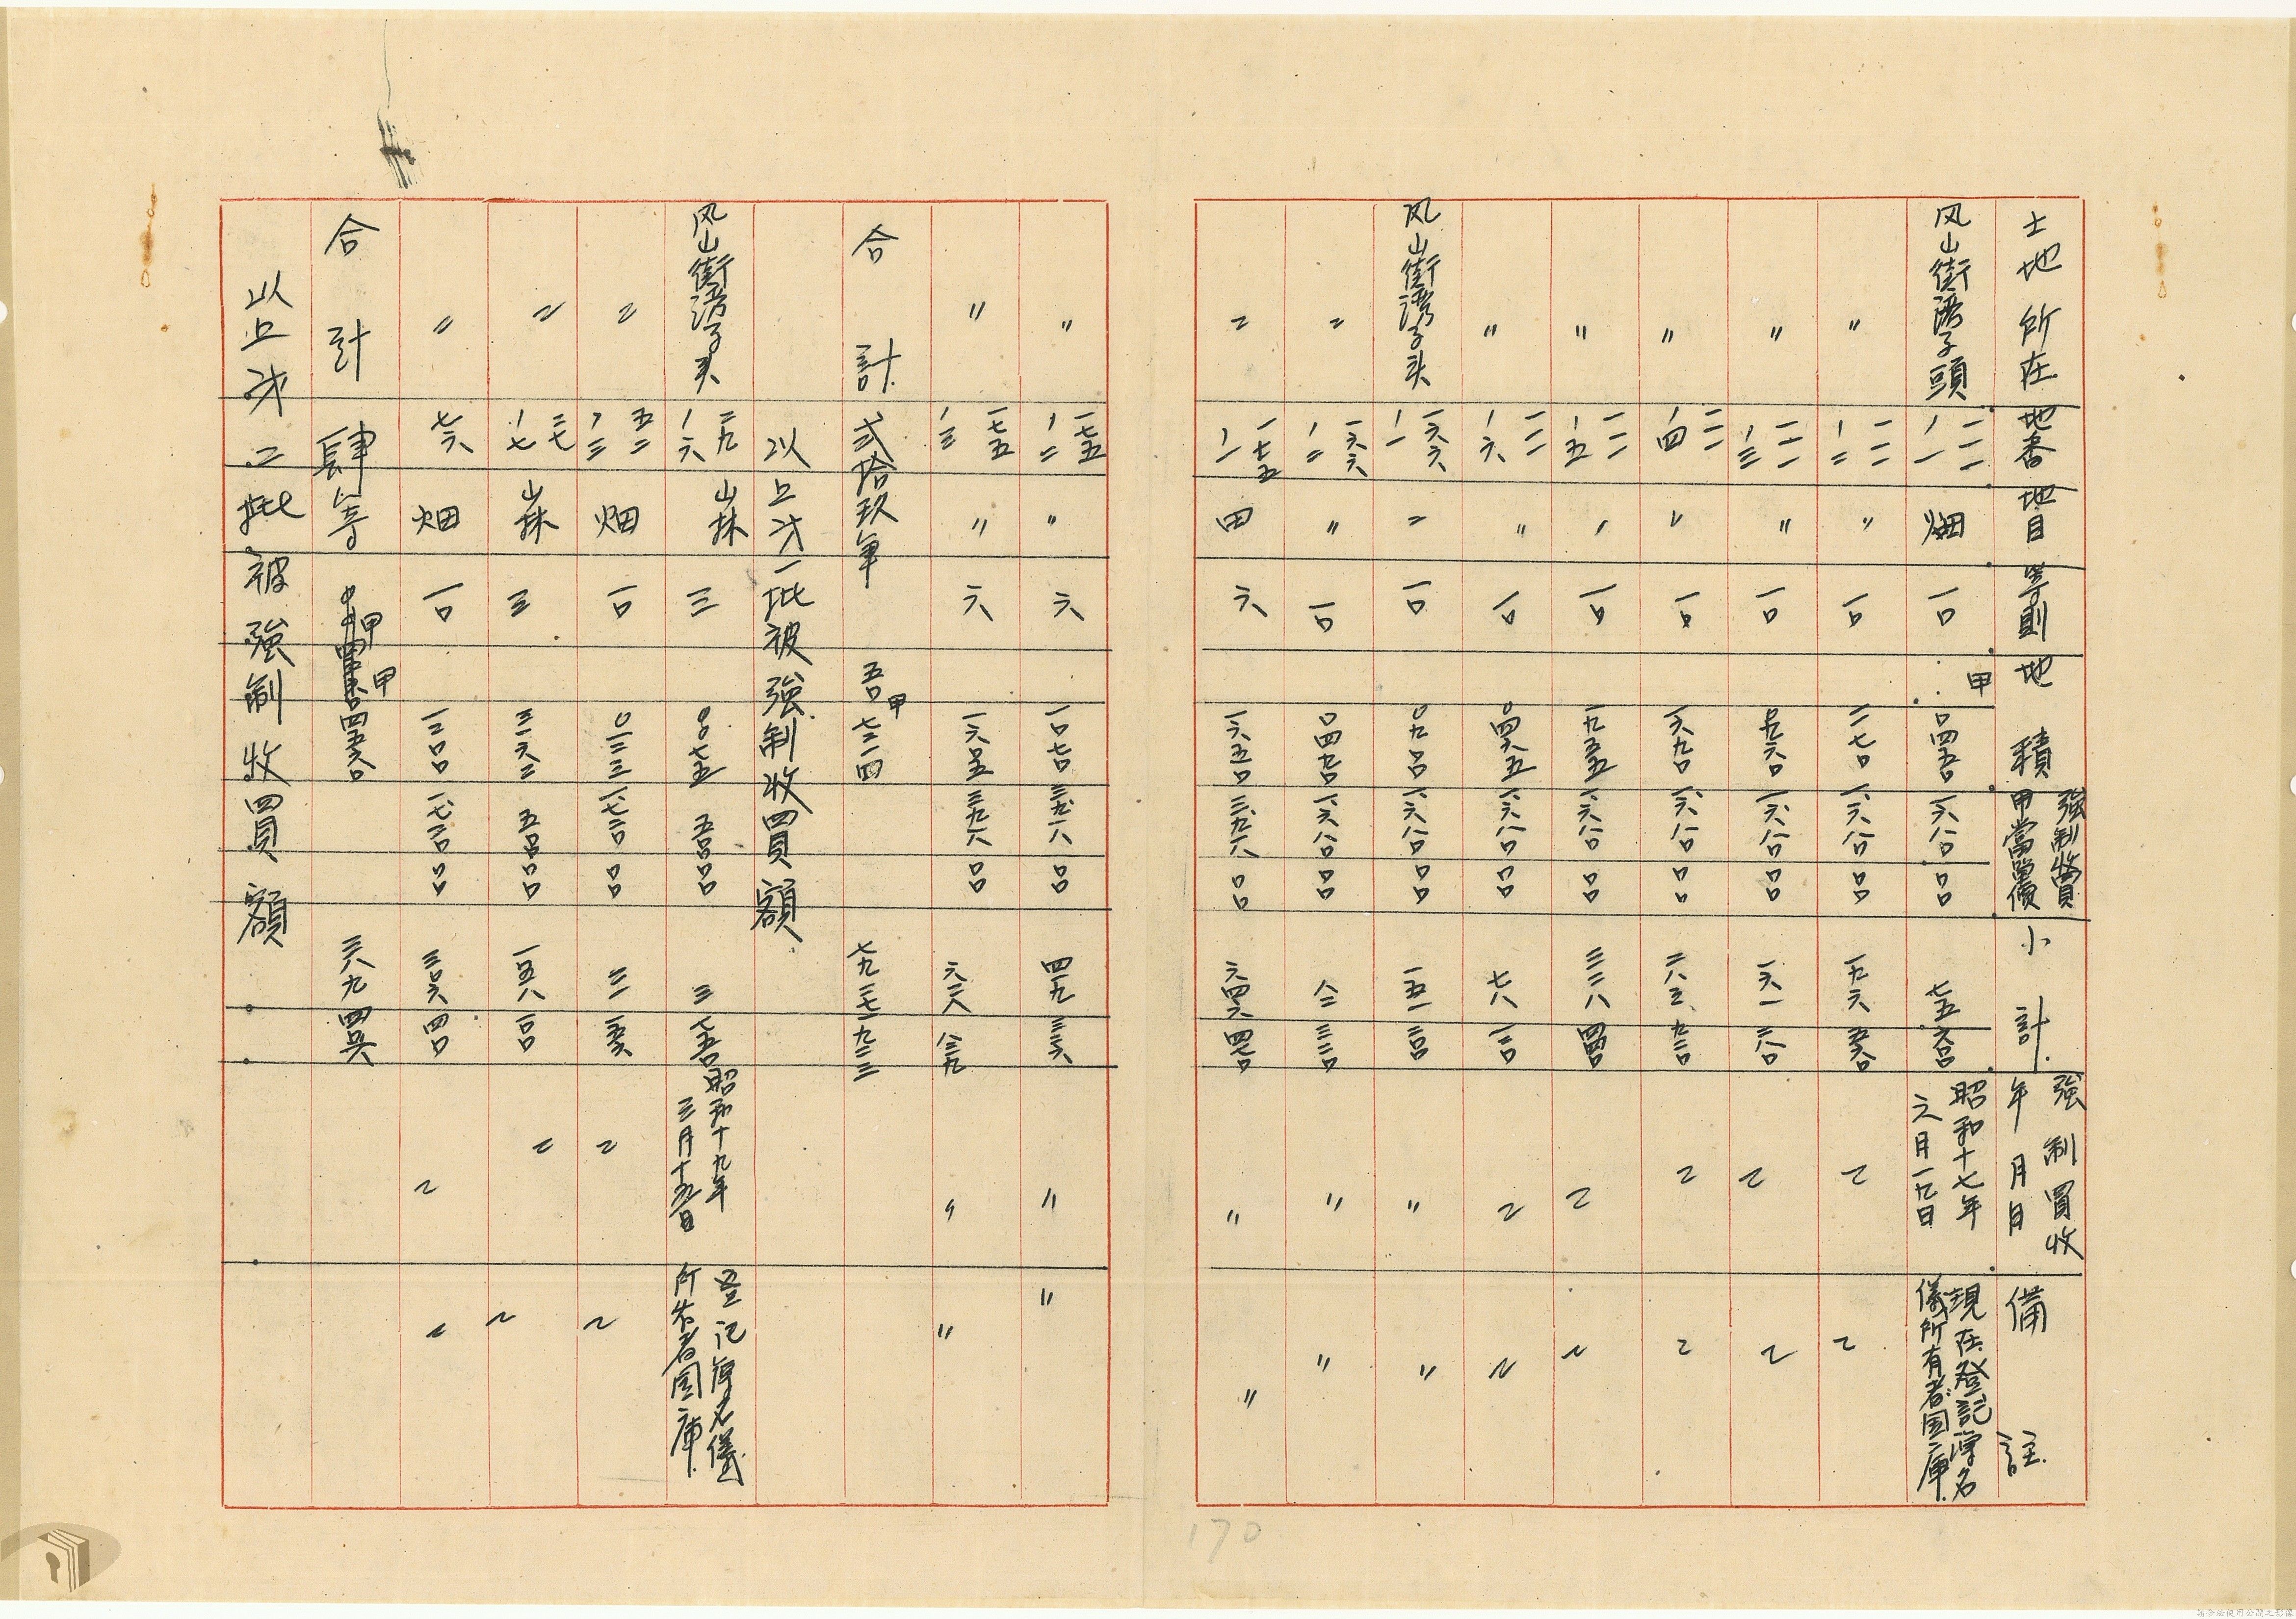 土地所在 地番 地目 等則 地積 強制收買甲當單價 小計 強制買收年月日 備註
风山街湾子頭 一一一ノ一 畑 一〇 甲〇四五〇 一六八〇〇〇 七五六〇 昭和十七年六月一九日 現在登記簿名儀所有者国庫
〃 一一一ノ二 〃 一〇 一一七〇 一六八〇〇〇 一九六五六〇 〃 〃
〃 一一一ノ三 〃 一〇 〇九六〇 一六八〇〇〇 一六一二八〇 〃 〃
〃 一一一ノ四 〃 一〇 一六九〇 一六八〇〇〇 二八三九二〇 〃 〃
〃 一一一ノ五 〃 一〇 一九五五 一六八〇〇〇 三二八四四〇 〃 〃
〃 一一一ノ六 〃 一〇 〇四六五 一六八〇〇〇 七八一二〇 〃 〃
风山街湾子头 一六六ノ一 〃 一〇 〇九〇〇 一六八〇〇〇 一五一二〇〇 〃 〃
〃 一六六ノ二 〃 一〇 〇四九〇 一六八〇〇〇 八二三二〇 〃 〃
〃 一七五ノ一 田 六 一六五〇 三九一八〇〇 六四六四七〇 〃 〃
〃 一七五ノ二 〃 六 一〇七〇 三九一八〇〇 四一九二二六 〃 〃
〃 一七五ノ三 〃 六 一六〇五 三九一八〇〇 六二八八三九 〃 〃
合計 弍拾玖筆 五〇甲七二一四 七九二七一九二三
以上才一批被強制收買額
风山街湾子头 二九ノ六 山林 三 〇〇七五 五〇〇〇〇 三七五〇 昭和十九年三月十五日 登记簿名儀所有者国庫
〃 五二ノ三 畑 一〇 〇一三三 一七二〇〇〇 二二一五六 〃 〃
〃 三七ノ七 山林 三 三一六二 五〇〇〇〇 一五八一〇〇 〃 〃
〃 七六 畑 一〇 一二〇〇 一七二〇〇〇 三〇六四〇 〃 〃
合計 肆筆 甲四五六〇 三八九四四六
以上才二批被強制收買額
170